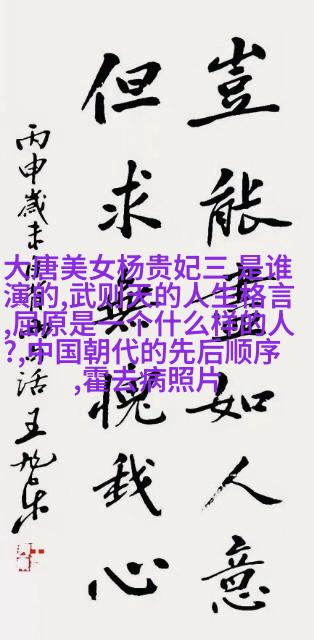 豈能盡如人意
但求無愧我心
丙申歲末
活王旭东
大唐美女杨贵妃三 是谁
演的,武则天的人生格言
,屈原是一个什么样的人
?,中国朝代的先后顺序
,霍去病照片